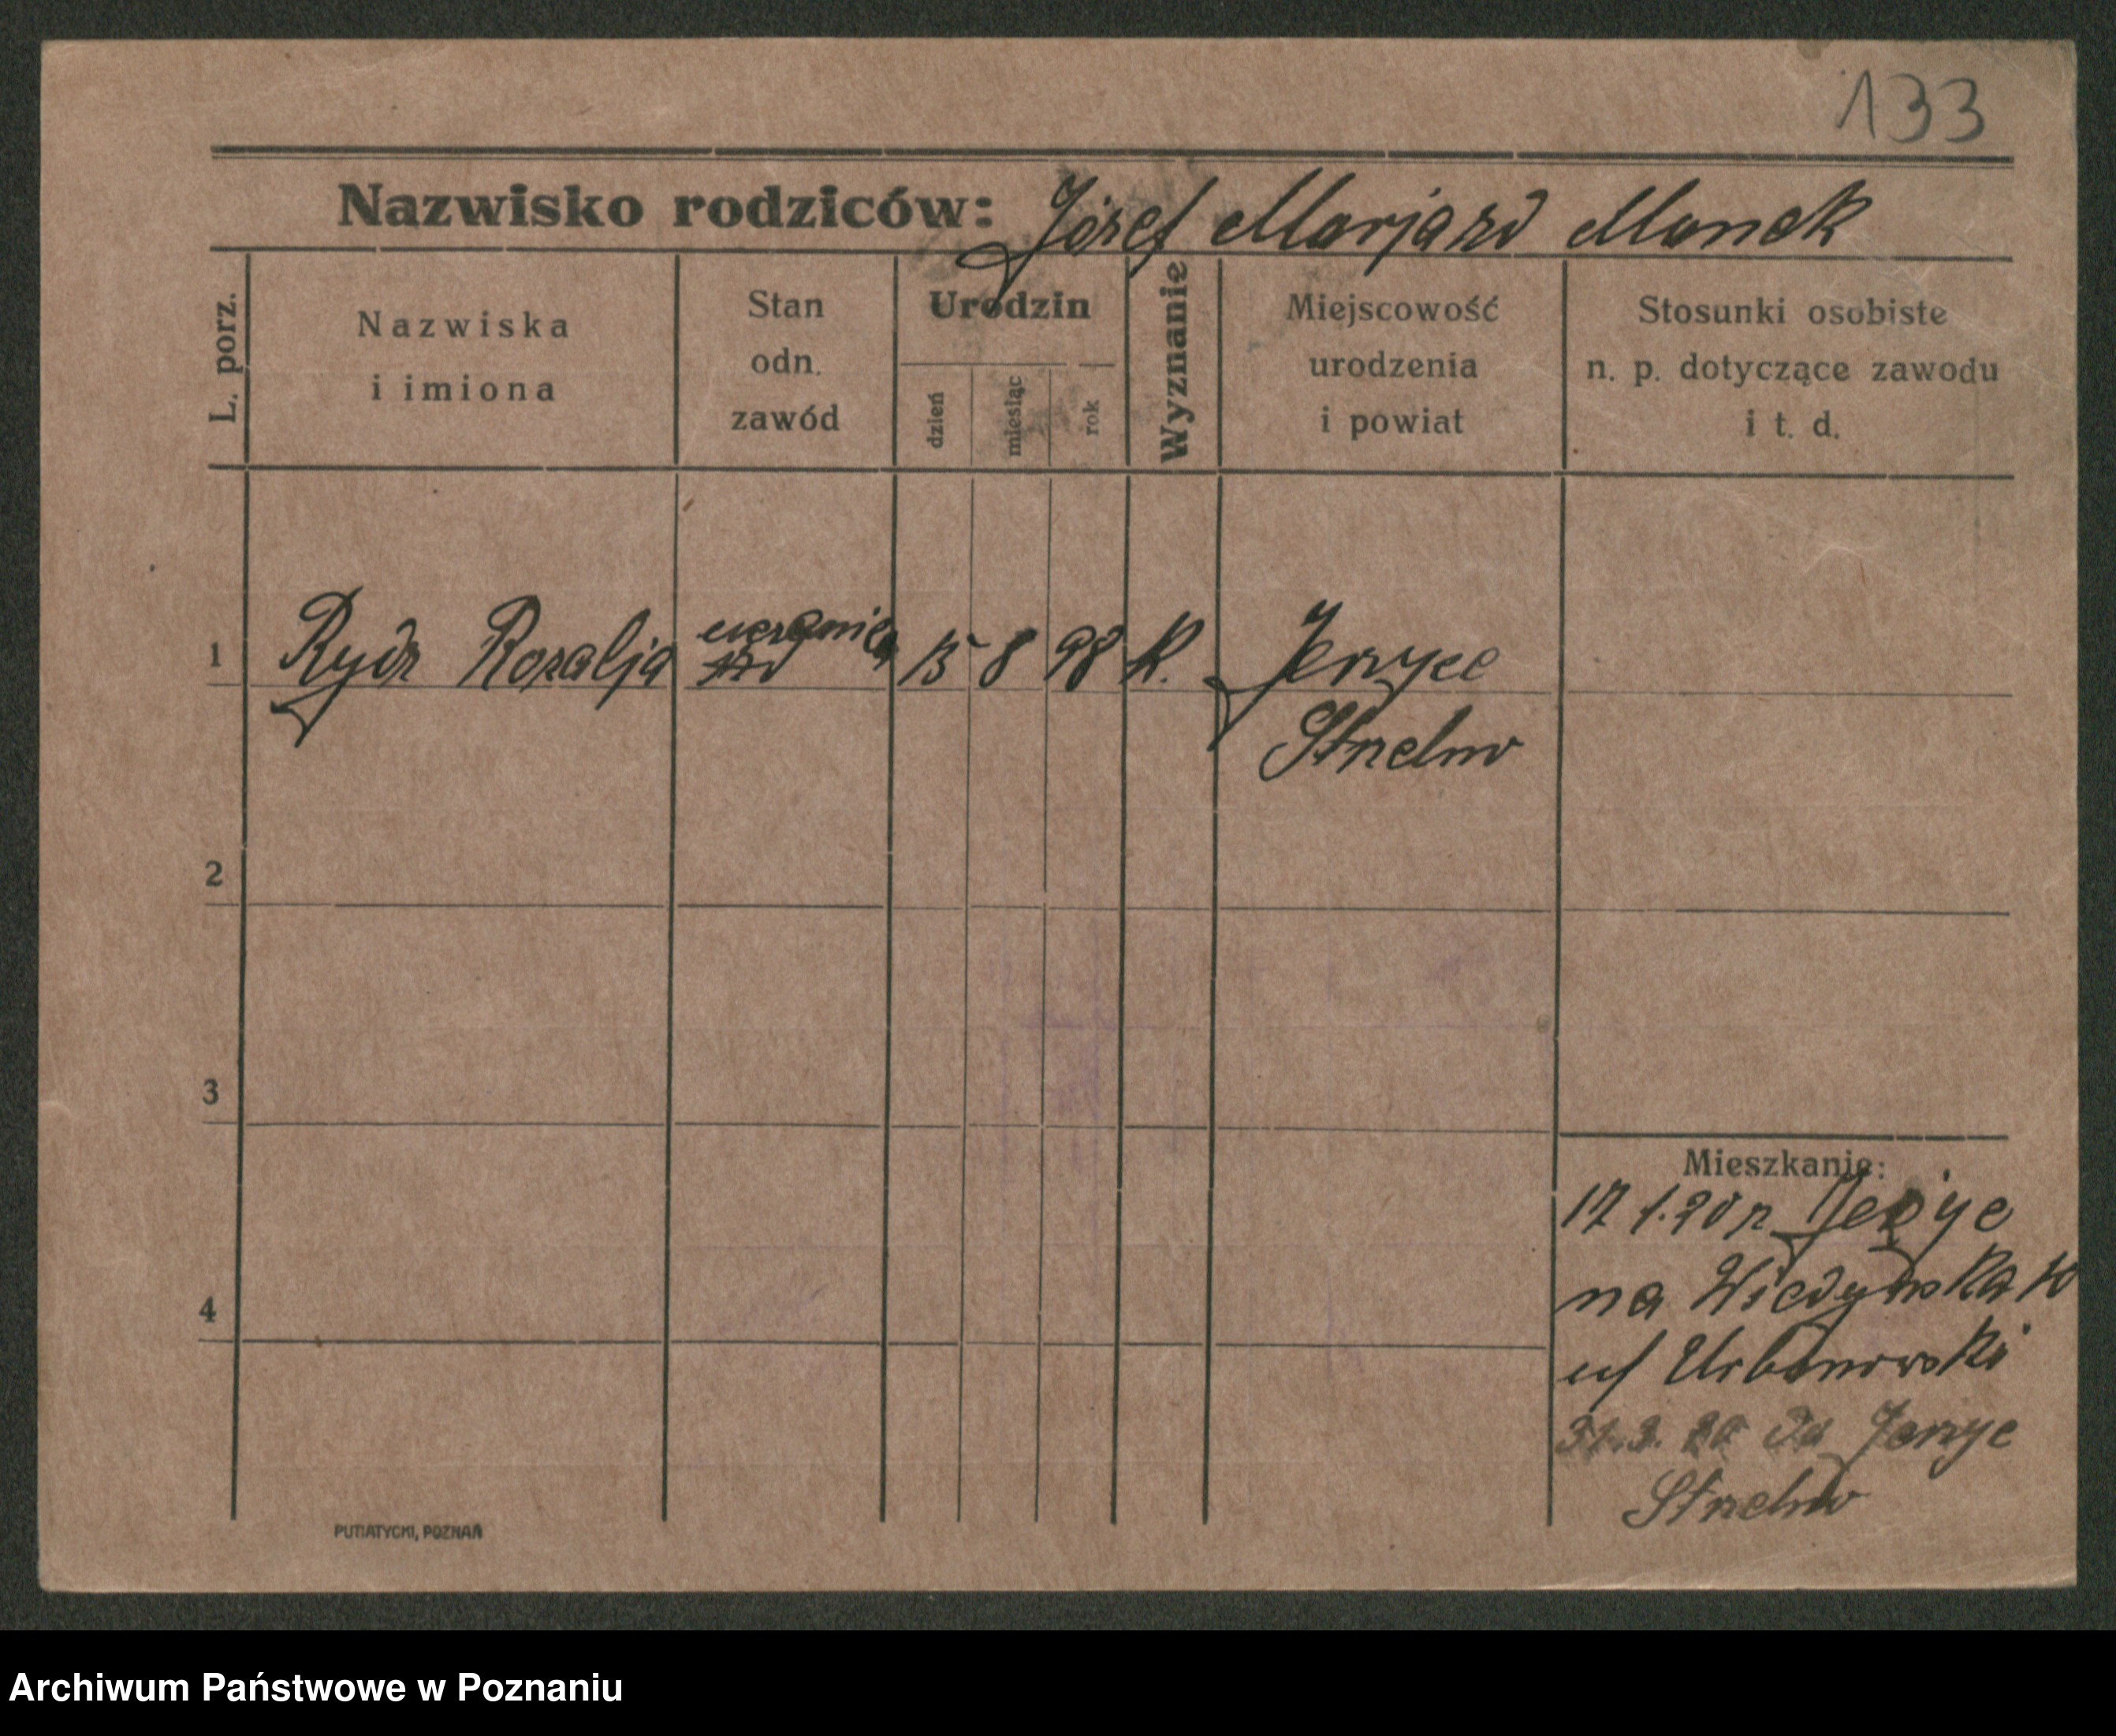 133
Nazwisko rodziców: Józef Marjazd Manek
L. porz.
Nazwiska
i imiona
Stan
odn.
zawód
Urodzin
dzień
miesiąc
rok
Wyznanie
Miejscowość
urodzenia
i powiat
Stosunki osobiste
n. p. dotyczące zawodu
i t. d.
1 Rydz Rozalja 15 8 98 K. Jerzyce
Strzelno
2
3
4
Mieszkanie:
17 1. 20 r
na
uf Urbanowski
31.3. 20 Jerzyce
Strzelno
PUTIATYCKI, POZNAŃ
Archiwum Państwowe w Poznaniu